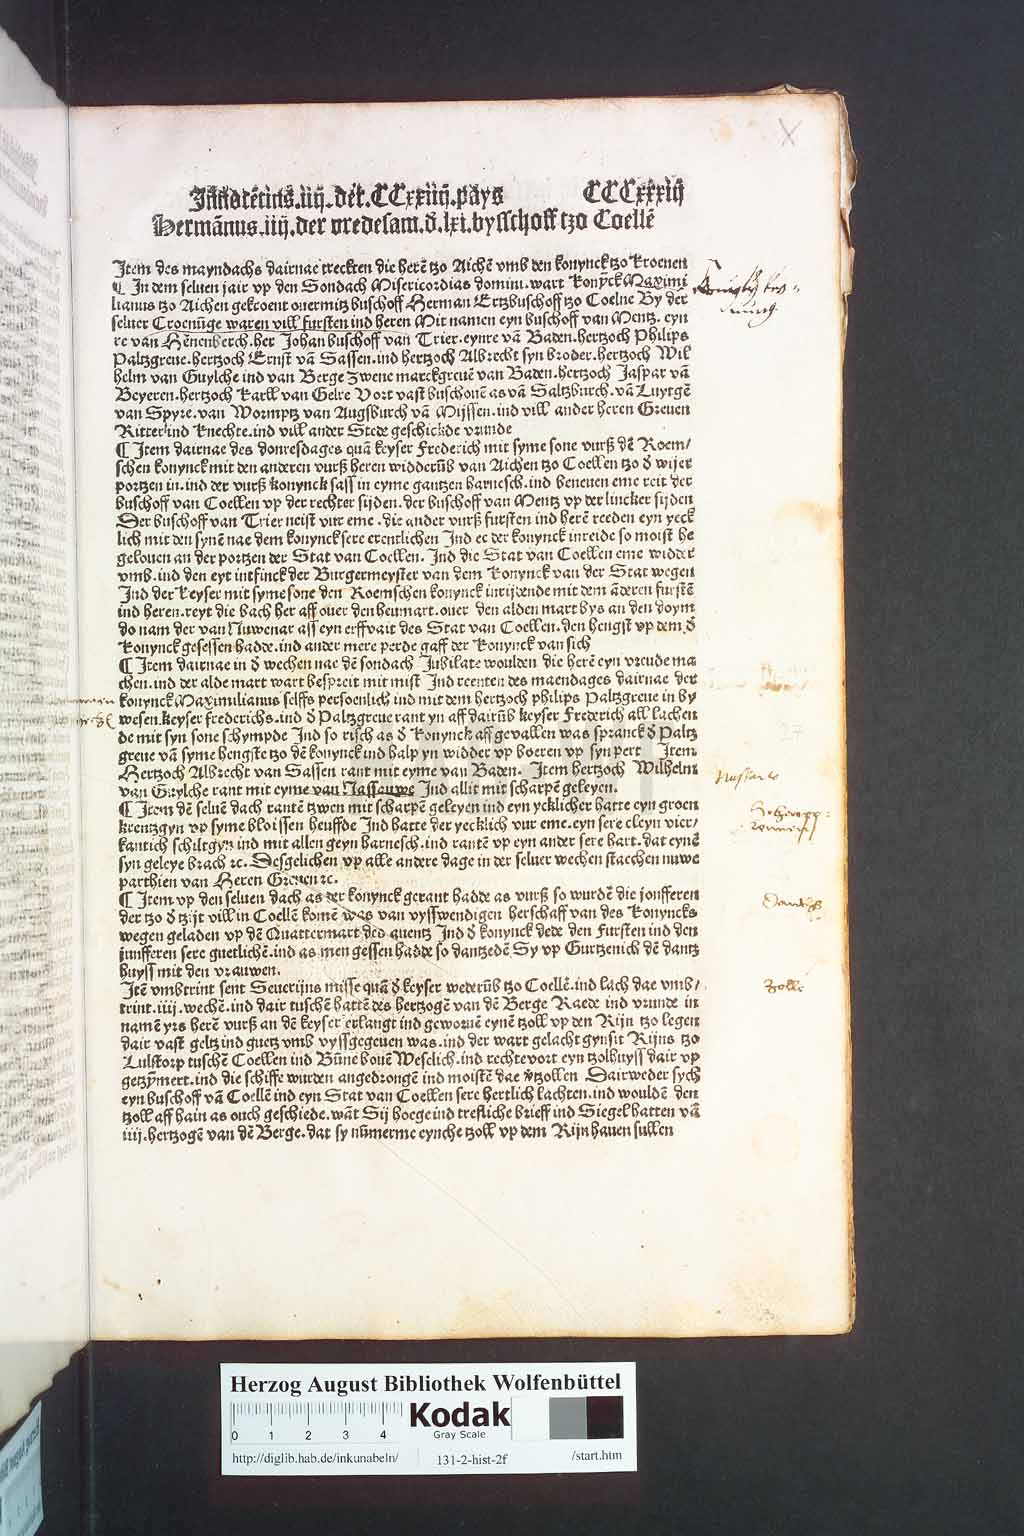 Innocētius .iiij. det. CCxxiiij. pays CCCxxxiij
Hermānus .iiij. der vredesam. d̄. lxi. bysschoff tzo Coellē
Item des mayndachs dairnae treckten die herē tzo Aichē vmb den konynck tzo kroenen
¶ In dem seluen jair vp den Sondach Misericordias domini. wart konȳck Maximi
lianus tzo Aichen gekroent ouermitz buschoff Herman Ertzbuschoff tzo Coelne By der
seluer Croenūge waren vill fursten ind heren Mit namen eyn buschoff van Mentz. eyn
re van Hēnenberch. her Johan buschoff van Trier. eynre vā Baden. hertzoch Philips
Paltzgreue. hertzoch Ernst vā Sassen. ind hertzoch Albrecht syn broder. hertzoch Wil
helm van Guylche ind van Berge zwene marckgreuē van Baden. hertzoch Jaspar vā
Beyeren. hertzoch Karll van Gelre Vort vast buschouē as vā Saltzburch. vā Luytgē
van Spyre. van Wormptz van Augsburch vā Mijssen. ind vill ander heren Greuen
Ritter ind knechte. ind vill ander Stede geschickde vrunde
¶ Item dairnae des donresdages quā keyser Frederich mit syme sone vurß dē Roem/
schen konynck mit den anderen vurß heren widderūb van Aichen tzo Coellen tzo d̄ wijer
portzen in. ind der vurß konynck sass in eyme gantzen harnesch. ind beneuen eme reit der
buschoff van Coellen vp der rechter sijden. der buschoff van Mentz vp der lincker sijden
Der buschoff van Trier neist vur eme. die ander vurß fursten ind herē reeden eyn yeck
lich mit den synēn nae dem konynck sere erentlichen Ind ee der konynck inreide so moist he
gelouen an der portzen der Stat van Coellen. Ind die Stat van Coellen eme widder
vmb. ind den eyt intfinck der Burgermeyster van dem konynck van der Stat wegen
Ind der keyser mit syme sone den Roemschen konynck inrijdende mit dem āderen furstē
ind heren. reyt die bach her aff ouer den heumart. ouer den alden mart bys an den doym
do nam der van Nuwenar ass eyn erffvait des Stat van Coellen. den hengst vp dem d̄
konynck gesessen hadde. ind ander mere perde gaff der konynck van sich
¶ Item dairnae in d̄ wechen nae dē sondach Jubilate woulden die herē eyn vreude ma
chen. ind der alde mart wart bespreit mit mist Ind reenten des maendages dairnae der
konynck Maximilianus selffs persoenlich ind mit dem hertzoch philips Paltzgreue in by
wesen. keyser frederichs. ind d̄ Paltzgreue rant yn aff dairūb keyser Frederich all lachen
de mit syn sone schympde Ind so risch as d̄ konynck affgevallen was spranck d̄ Paltz
greue vā syme hengste tzo dē konynck ind halp yn widder vp boeren vp syn pert Item
Hertzoch Albrecht van Sassen rant mit eyme van Baden. Item hertzoch Wilhelm
van Guylche rant mit eyme van Nassauwe Ind allit mit scharpē geleyen.
¶ Item dē seluē dach rantē tzwen mit scharpē geleyen ind eyn ycklicher hatte eyn groen
krentzgyn vp syme bloissen heuffde Ind hatte der yecklich vur eme. eyn sere cleyn vier/
kantich schiltgyn ind mit allen geyn harnesch. ind rantē vp eyn ander sere hart. dat eynē
syn geleye brach ꝛc. Desgelichen vp alle andere dage in der seluer wechen staechen nuwe
parthien van Heren Greuen ꝛc.
¶ Item vp den seluen dach as der konynck gerant hadde as vurß so wurdē die jonfferen
der tzo d̄ tzijt vill in Coellē komē was van vysswendigen herschaff van des konyncks
wegen geladen vp dē Quattermart tzo quentz Ind d̄ konynck dede den Fursten ind den
junfferen sere guetlichē. ind as men gessen hadde so dantzedē Sy vp Gurtzenich dē dantz
huyss mit den vrauwen.
Itē vmbtrint sent Seuerijns misse quā d̄ keyser wederūb tzo Coellē. ind lach dae vmb/
trint. iiij. wechē. ind dair tuschē hattē des hertzogē van dē Berge Raede ind vrunde in
namē yrs herē vurß an dē keyser erlangt ind geworuē eynē tzoll vp den Rijn tzo legen
dair vast geltz ind guetz vmb vyssgegeuen was. ind der wart gelacht gynsit Rijns tzo
Lulstorp tuschē Coellen ind Būne bouē Weselich. ind rechtevort eyn tzolhuyss dair vp
getzȳmert. ind die schiffe wurden angedrongē ind moistē dae v̄tzollen Dairweder sych
eyn buschoff vā Coellē ind eyn Stat van Coellen sere hertlich lachten. ind wouldē den
tzoll aff hain as ouch geschiede. wāt Sij hoege ind trefliche brieff ind Siegel hatten vā
iiij. hertzogē van dē Berge. dat sy nūmerme eynche tzoll vp dem Rijn hauen sullen
Zolle
X
27
Herzog August Bibliothek Wolfenbüttel
0 1 2 3 4 Kodak
Gray Scale
http://diglib.hab.de/inkunabeln/ 131-2-hist-2f /start.htm